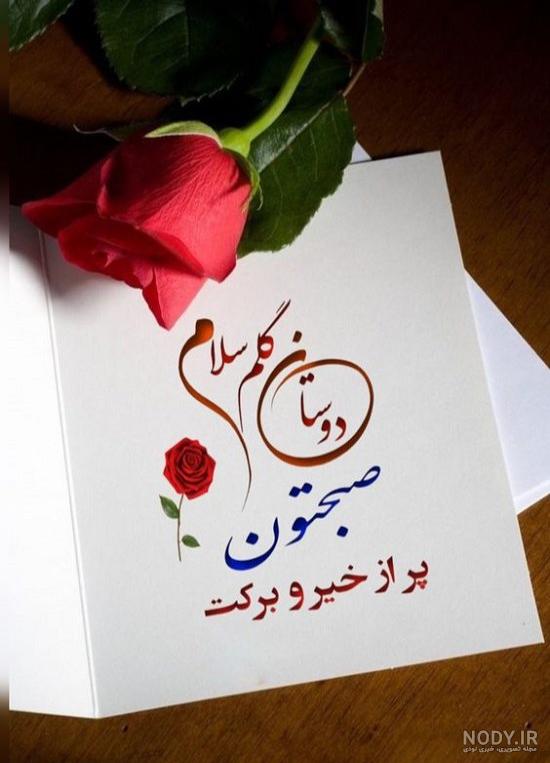 دوستان گلم سلام
صبحتون
پر از خیر و برکت
NODY.IR
مجله تصویری، خبری نودی